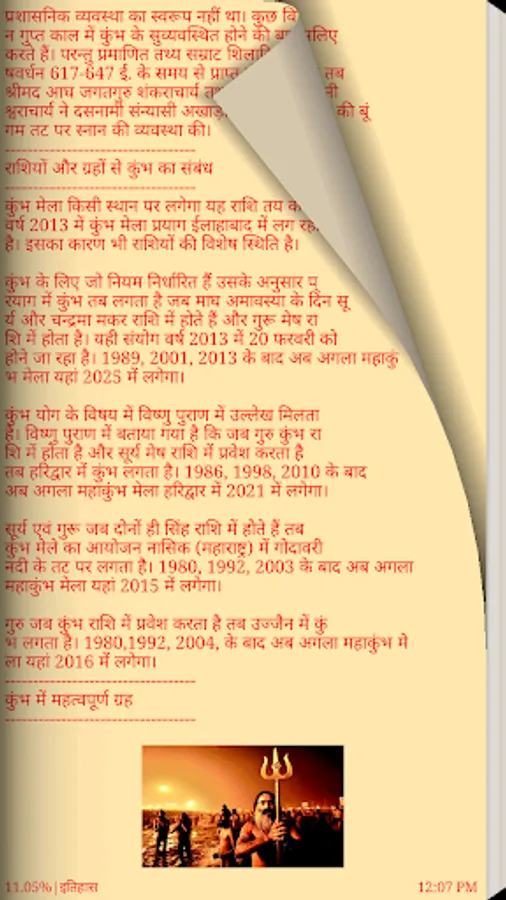 प्रशासनिक व्यवस्था का स्वरूप नहीं था। कुछ वि
न गुप्त काल में कुंभ के सुव्यवस्थित होने की लिए
करते हैं। परन्तु प्रमाणित तथ्य सम्राट
षवर्धन 617-647 ई. के समय से तब
श्रीमद आघ जगतगुरु शंकराचार्य नी
श्वराचार्य ने दसनामी संन्यासी की बूं
गम तट पर स्नान की व्यवस्था की।
-----------------------------------
राशियों और ग्रहों से कुंभ का संबंध
-----------------------------------
कुंभ मेला किसी स्थान पर लगेगा यह राशि तय
वर्ष 2013 में कुंभ मेला प्रयाग ईलाहाबाद में लग
है। इसका कारण भी राशियों की विशेष स्थिति है।
कुंभ के लिए जो नियम निर्धारित हैं उसके अनुसार प्
रयाग में कुंभ तब लगता है जब माघ अमावस्या के दिन सू
र्य और चन्द्रमा मकर राशि में होते हैं और गुरू मेष रा
शि में होता है। यही संयोग वर्ष 2013 में 20 फरवरी को
होने जा रहा है। 1989, 2001, 2013 के बाद अब अगला महाकुं
भ मेला यहां 2025 में लगेगा।
कुंभ योग के विषय में विष्णु पुराण में उल्लेख मिलता
है। विष्णु पुराण में बताया गया है कि जब गुरु कुंभ रा
शि में होता है और सूर्य मेष राशि में प्रवेश करता है
तब हरिद्वार में कुंभ लगता है। 1986, 1998, 2010 के बाद
अब अगला महाकुंभ मेला हरिद्वार में 2021 में लगेगा।
सूर्य एवं गुरू जब दोनों ही सिंह राशि में होते हैं तब
कुंभ मेले का आयोजन नासिक (महाराष्ट्र) में गोदावरी
नदी के तट पर लगता है। 1980, 1992, 2003 के बाद अब अगला
महाकुंभ मेला यहां 2015 में लगेगा।
गुरु जब कुंभ राशि में प्रवेश करता है तब उज्जैन में कुं
भ लगता है। 1980,1992, 2004, के बाद अब अगला महाकुंभ मे
ला यहां 2016 में लगेगा।
-----------------------------------
कुंभ में महत्वपूर्ण ग्रह
-----------------------------------
11.05% | इतिहास
12:07 PM